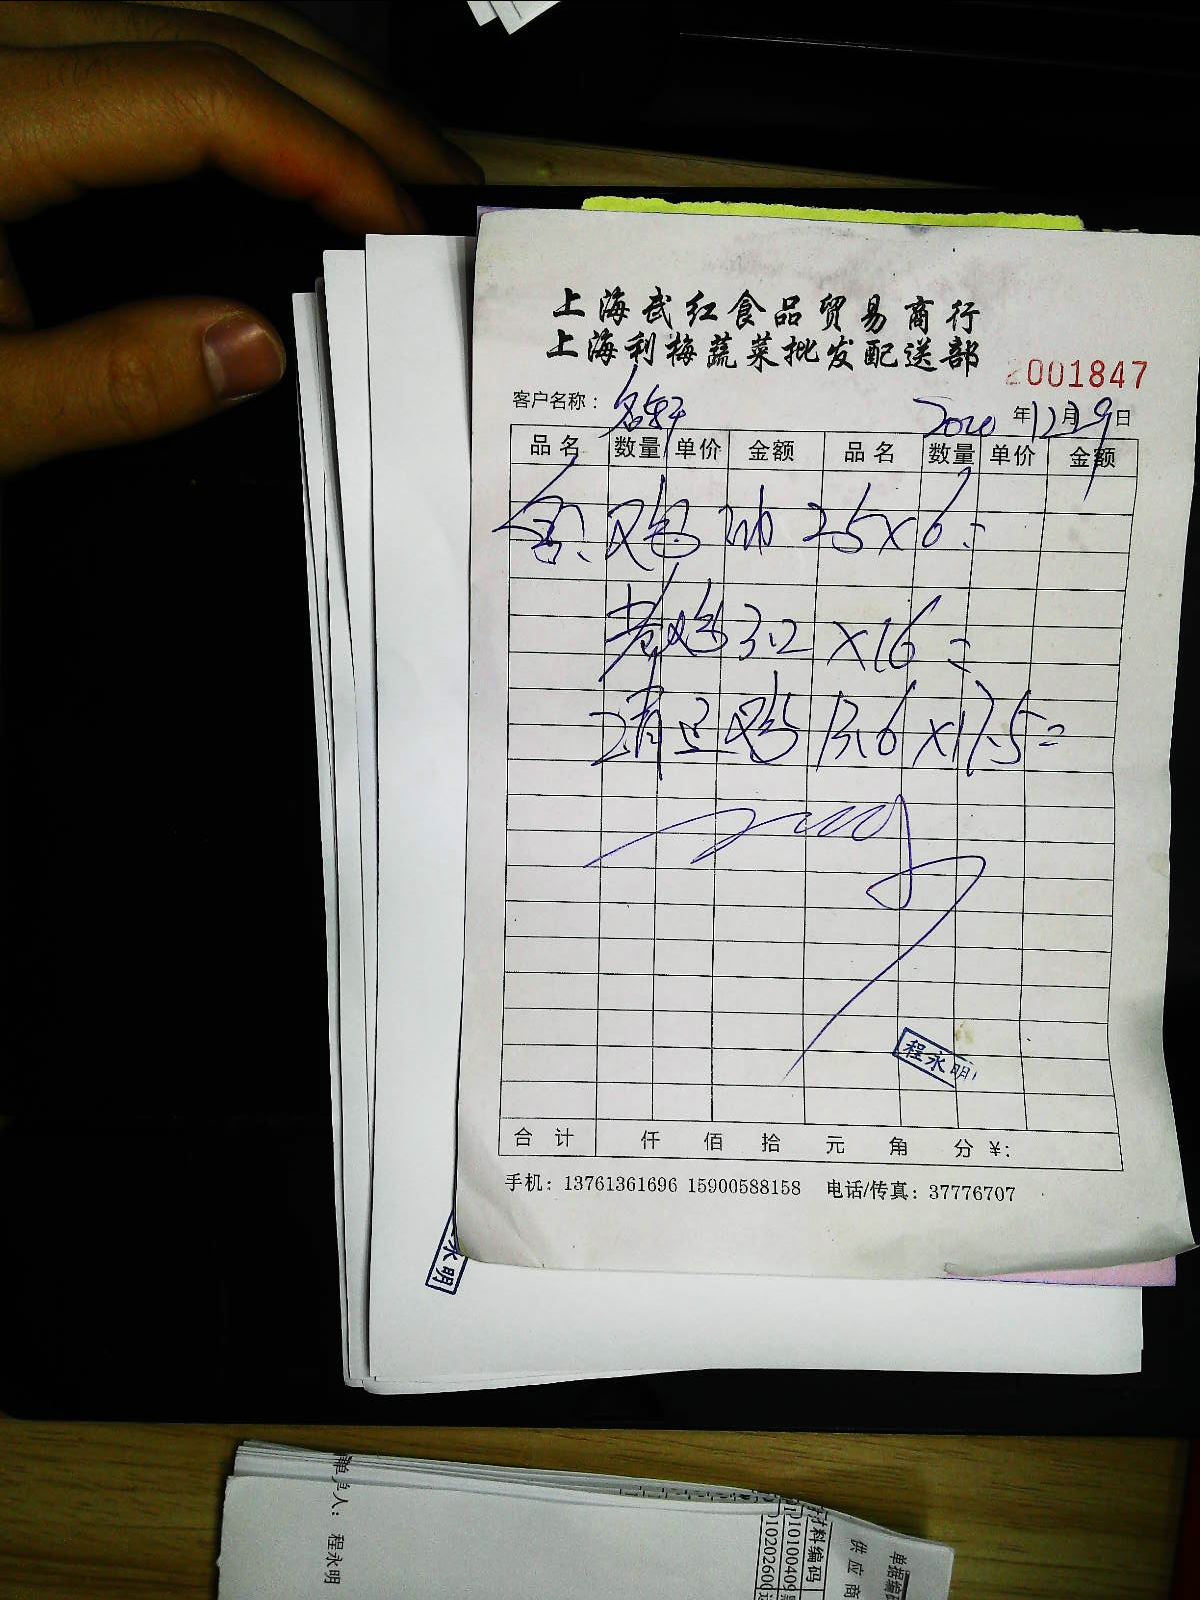 上海武红食品贸易商行
上海利梅蔬菜批发配送部
2001847
客户名称： 名轩 2020 年 12 月 9 日
品名 数量 单价 金额 品名 数量 单价 金额
鸡 25×6=
老鸡 3.2 ×16 =
清 鸡 13.6×17.5=
程永明
合计 仟 佰 拾 元 角 分 ￥:
手机：13761361696 15900588158 电话/传真：37776707
永明
人： 程永明
材料编码
供应商